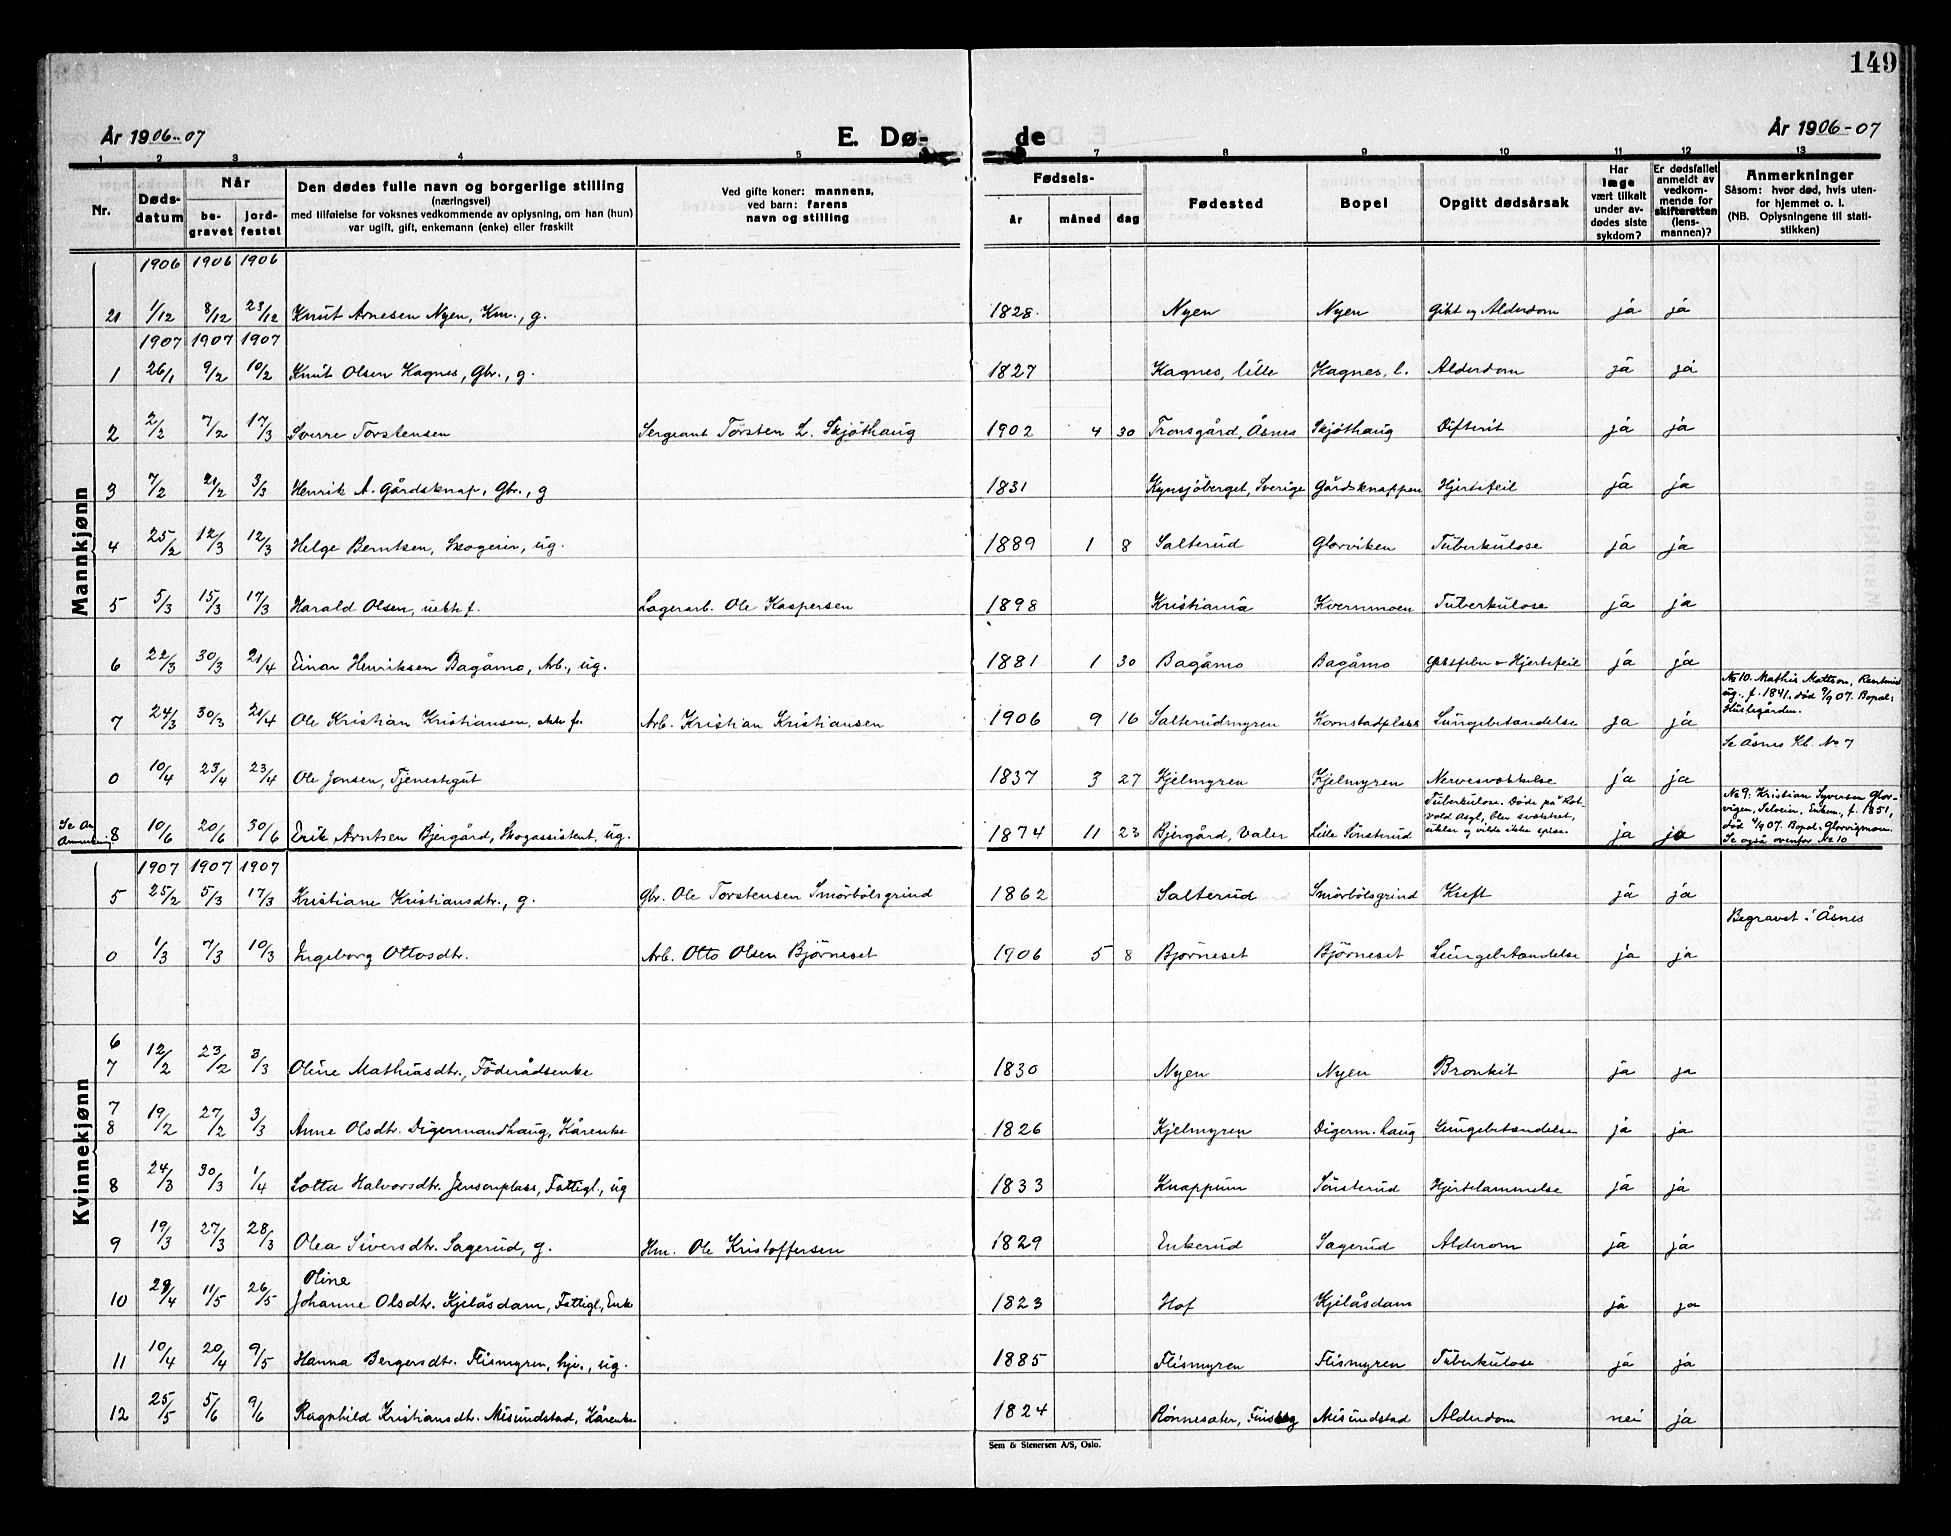 149
År 1906-07 E. Dø- de År 1906-07
1 2 3 4 5 7 8 9 10 11 12 13
Nr. Døds-datum Når be-gravet jord-festet Den dødes fulle navn og borgerlige stilling (næringsvei) med tilføielse for voksnes vedkommende av oplysning, om han (hun) var ugift, gift, enkemann (enke) eller fraskilt Ved gifte koner: mannens, ved barn: farens navn og stilling Fødsels- år måned dag Fødested Bopel Opgitt dødsårsak Har læge vært tilkalt under av-dødes siste sykdom? Er dødsfallet anmeldt av vedkom-mende for skifteretten (lens-mannen)? Anmerkninger Såsom: hvor død, hvis uten-for hjemmet o. l. (NB. Oplysningene til stati-stikken)
Mannkjønn
1906 1906 1906
21 1/12 8/12 23/12 Knut Arnesen Nyen, Km., g. 1828 Nyen Nyen Gikt og Alderdom ja ja
1907 1907 1907
1 26/1 9/2 10/2 Knut Olsen Hagnes, Gbr., g. 1827 Hagnes, lille Hagnes, l. Alderdom ja ja
2 2/2 7/2 17/3 Sverre Torstensen Sergeant Torsten L. Skjöthaug 1902 4 30 Tronsgård, Åsnes Skjöthaug Difterit ja ja
3 7/2 21/2 3/3 Henrik A. Gårdsknap, Gbr., g 1831 Kynsjöberget, Sverige Gårdsknappen Hjertefeil ja ja
4 25/2 12/3 12/3 Helge Berntsen, Skogeier, ug. 1889 1 8 Salterud Glorviken Tuberkulose ja ja
5 5/3 15/3 17/3 Harald Olsen, uekte f. Lagerarb. Ole Kaspersen 1898 Kristiania Kvernmoen Tuberkulose ja ja
6 22/3 30/3 21/4 Einar Henriksen Bagåmo, Arb., ug. 1881 1 30 Bagåmo Bagåmo Giktfeber o Hjertefeil ja ja
No 10. Mathis Mattson,
ug., f. 1841, död 9/9 07. Bopel:
Huslegården.
7 24/3 30/3 21/4 Ole Kristian Kristiansen, ekte f. Arb. Kristian Kristiansen 1906 9 16 Salterudmyren Kornstadplass Lungebetændelse ja ja
Se Åsnes Kb. No 7
0 10/4 23/4 23/4 Ole Jonsen, Tjenestegut 1837 3 27 Kjelmyren Kjelmyren Nervesvækkelse ja ja
Se An Anmerkning 8 10/6 20/6 30/6 Erik Arntsen Bjergård, Skogassistent, ug. 1874 11 23 Bjergård, Valer Lille Sönsterud Tuberkulose. Döde på Kot-vold Asyl, blev svækket, og vilde ikke spise. ja ja
No 9: Kristian Syversen Glor-
vigen, Selveier, Enkem, f. 1851,
död 4/9 07. Bopel: Glorvigmoen.
Se også ovenfor No 10
Kvinnekjønn
1907 1907 1907
5 25/2 5/3 17/3 Kristiane Kristiansdtr., g. Gbr. Ole Torstensen Smörbölsgrind 1862 Salterud Smörbölsgrind Kreft ja ja
Begravet i Åsnes
0 1/3 7/3 10/3 Ingeborg Ottosdtr. Arb. Otto Olsen Björneset 1906 5 8 Björneset Björneset Lungebetændelse ja ja
6
7 12/2 23/2 3/3 Oline Mathiasdtr., Föderådsenke 1830 Nyen Nyen Bronkit ja ja
7
8 19/2 27/2 3/3 Anne Olsdtr. Digermandhaug, Kårenke 1826 Kjelmyren Digerm. haug Lungebetændelse ja ja
8 24/3 30/3 1/4 Lotta Halvorsdtr. Jensenplass, Fattigl., ug 1833 Knappum Sönsterud Hjertelammelse ja ja
9 19/3 27/3 28/3 Olea Siversdtr. Sagerud, g. Hm. Ole Kristoffersen 1829 Enkerud Sagerud Alderom ja ja
Oline
10 29/4 11/5 26/5 Johanne Olsdtr. Kjilåsdam, Fattigl, Enke 1823 Hof Kjilåsdam ja ja
11 10/4 20/4 9/5 Hanna Bergersdtr. Flismyren, hjv., ug. 1885 Flismyren Flismyren Tuberkulose ja ja
12 25/5 5/6 9/6 Ragnhild Kristiansdtr. Misundstad, Kårenke 1824 Rönnesæter, Finskog Misundstad Alderdom nei ja
Sem & Stenersen A/S, Oslo.